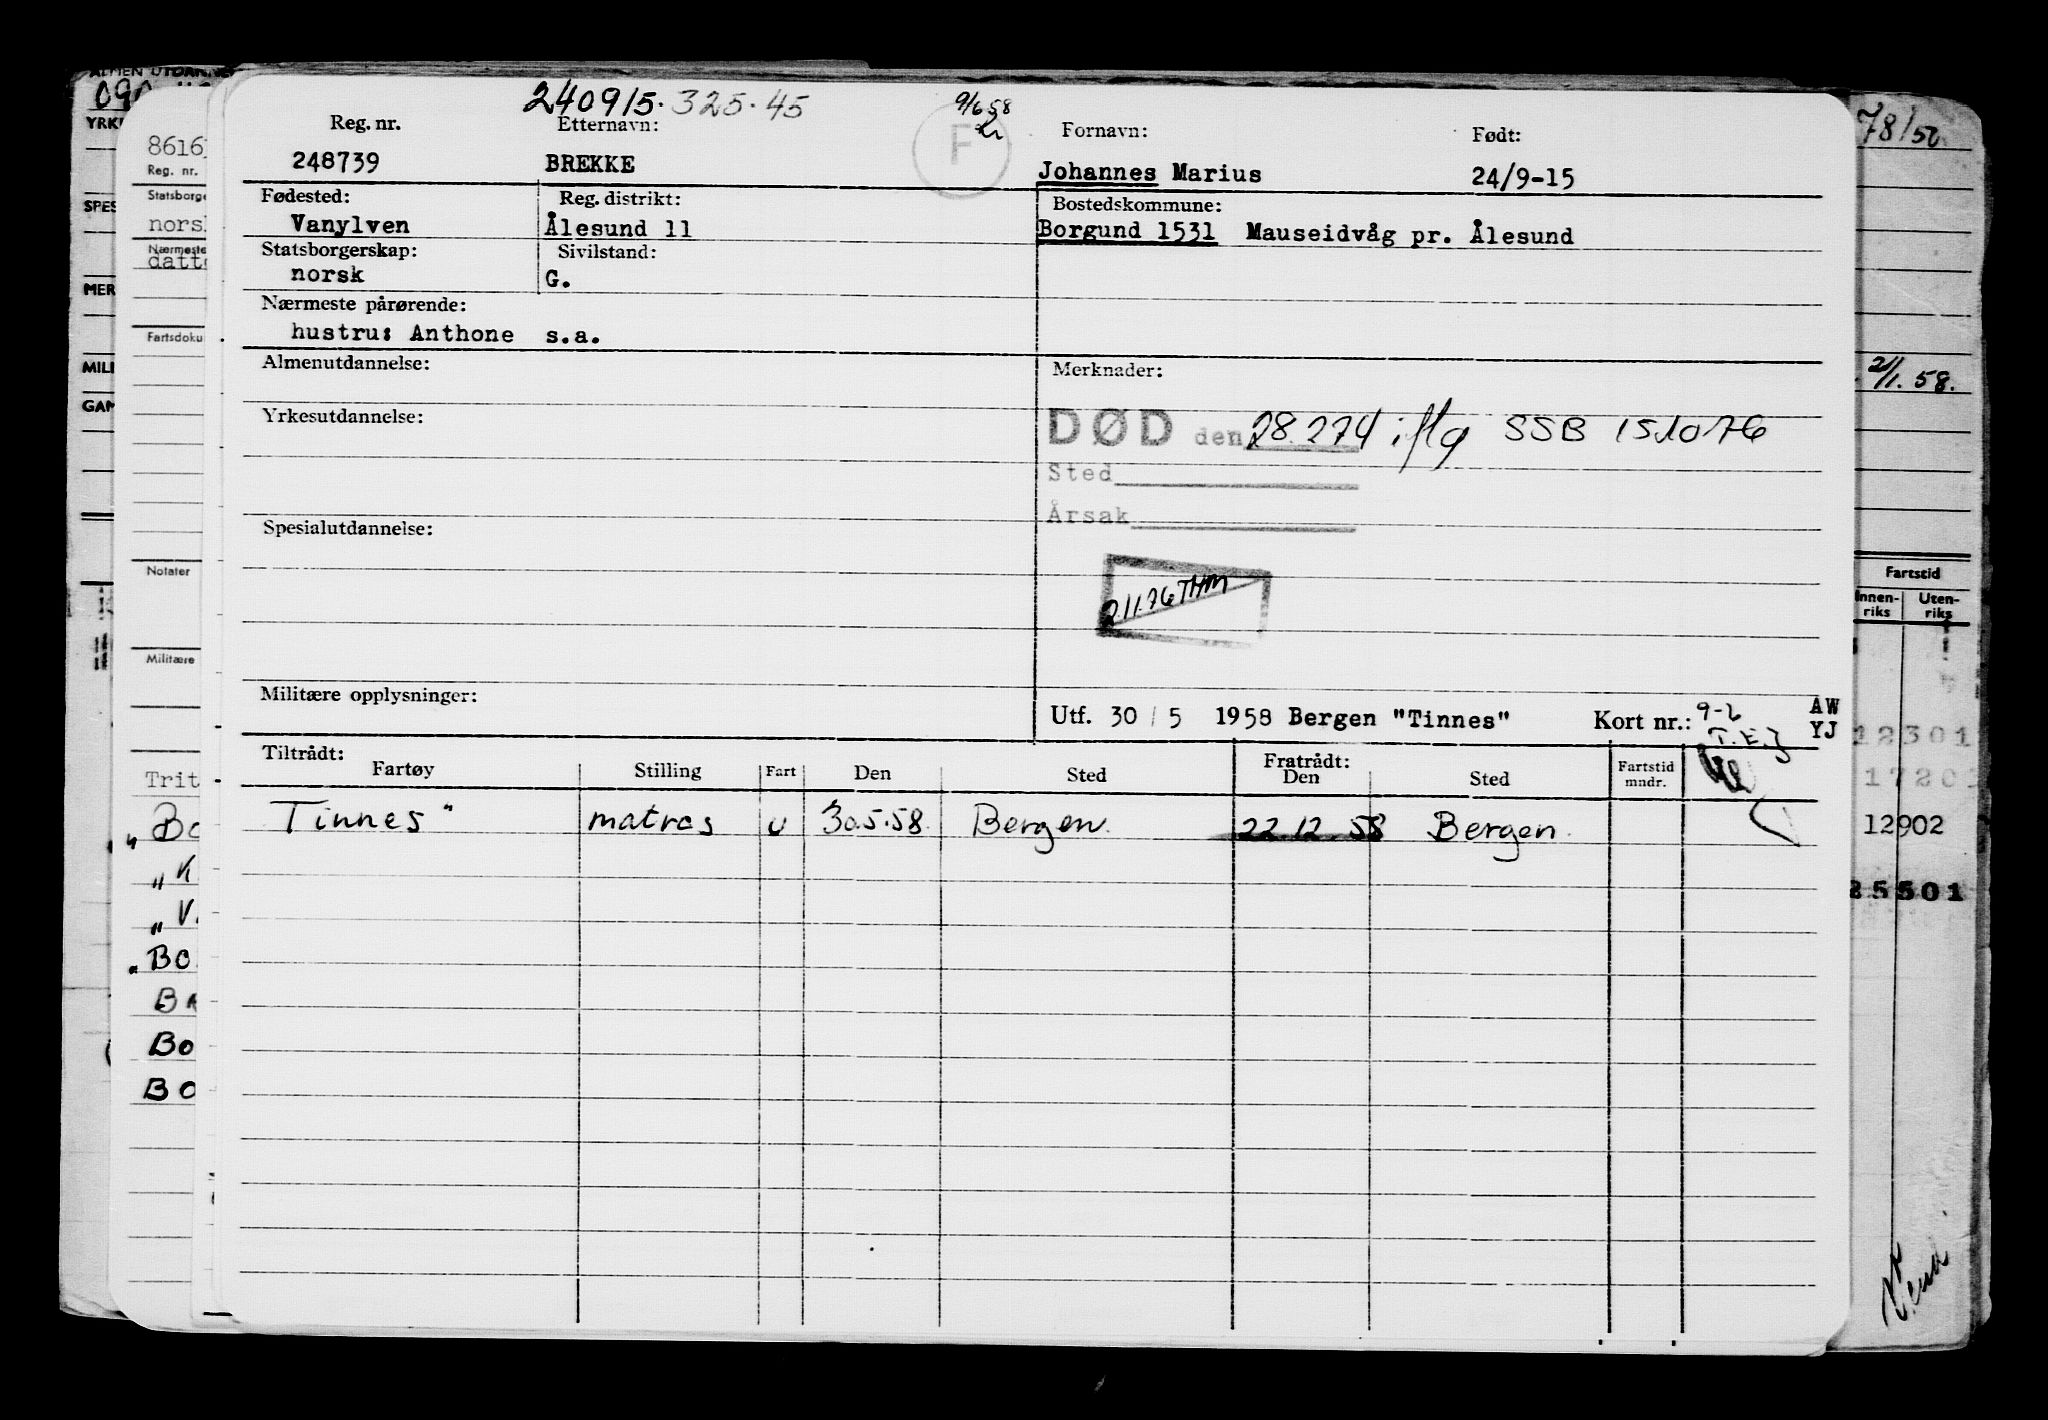 240915. 325.45
9/6 58
F
Reg. nr. Etternavn: Fornavn: Født:
248739 BREKKE Johannes Marius 24/9-15
Fødested: Reg. distrikt: Bostedskommune:
Vanylven Ålesund 11 Borgund 1531 Mauseidvåg pr. Ålesund
Statsborgerskap: Sivilstand:
norsk G.
Nærmeste pårørende:
hustru: Anthone s.a.
Almenutdannelse: Merknader:
Yrkesutdannelse: DØD den 28.274 iflg SSB 151076
Sted
Årsak
Spesialutdannelse:
2.11.76 THM
Militære opplysninger:
Utf. 30 / 5 1958 Bergen "Tinnes" Kort nr.: 9-2 AW
T.E.J YJ
Tiltrådt: Fratrådt:
Fartøy Stilling Fart Den Sted Den Sted Fartstid mndr.
Tinnes" matros u 30.5.58 Bergen. 22.12.58 Bergen.
ALMEN UTDANNE
YRK
SPES
MER
MILI
GAN
8616
Reg. nr.
Statsborge
norsk
Nærmeste
datte
Fartsdoku
Notater
Militære
Trit
" Bo
" K
" V.
" Bo
Bo
Bo
78/50
2/1. 58.
Fartstid
Innen-riks Uten-riks
12301
17201
12902
25501